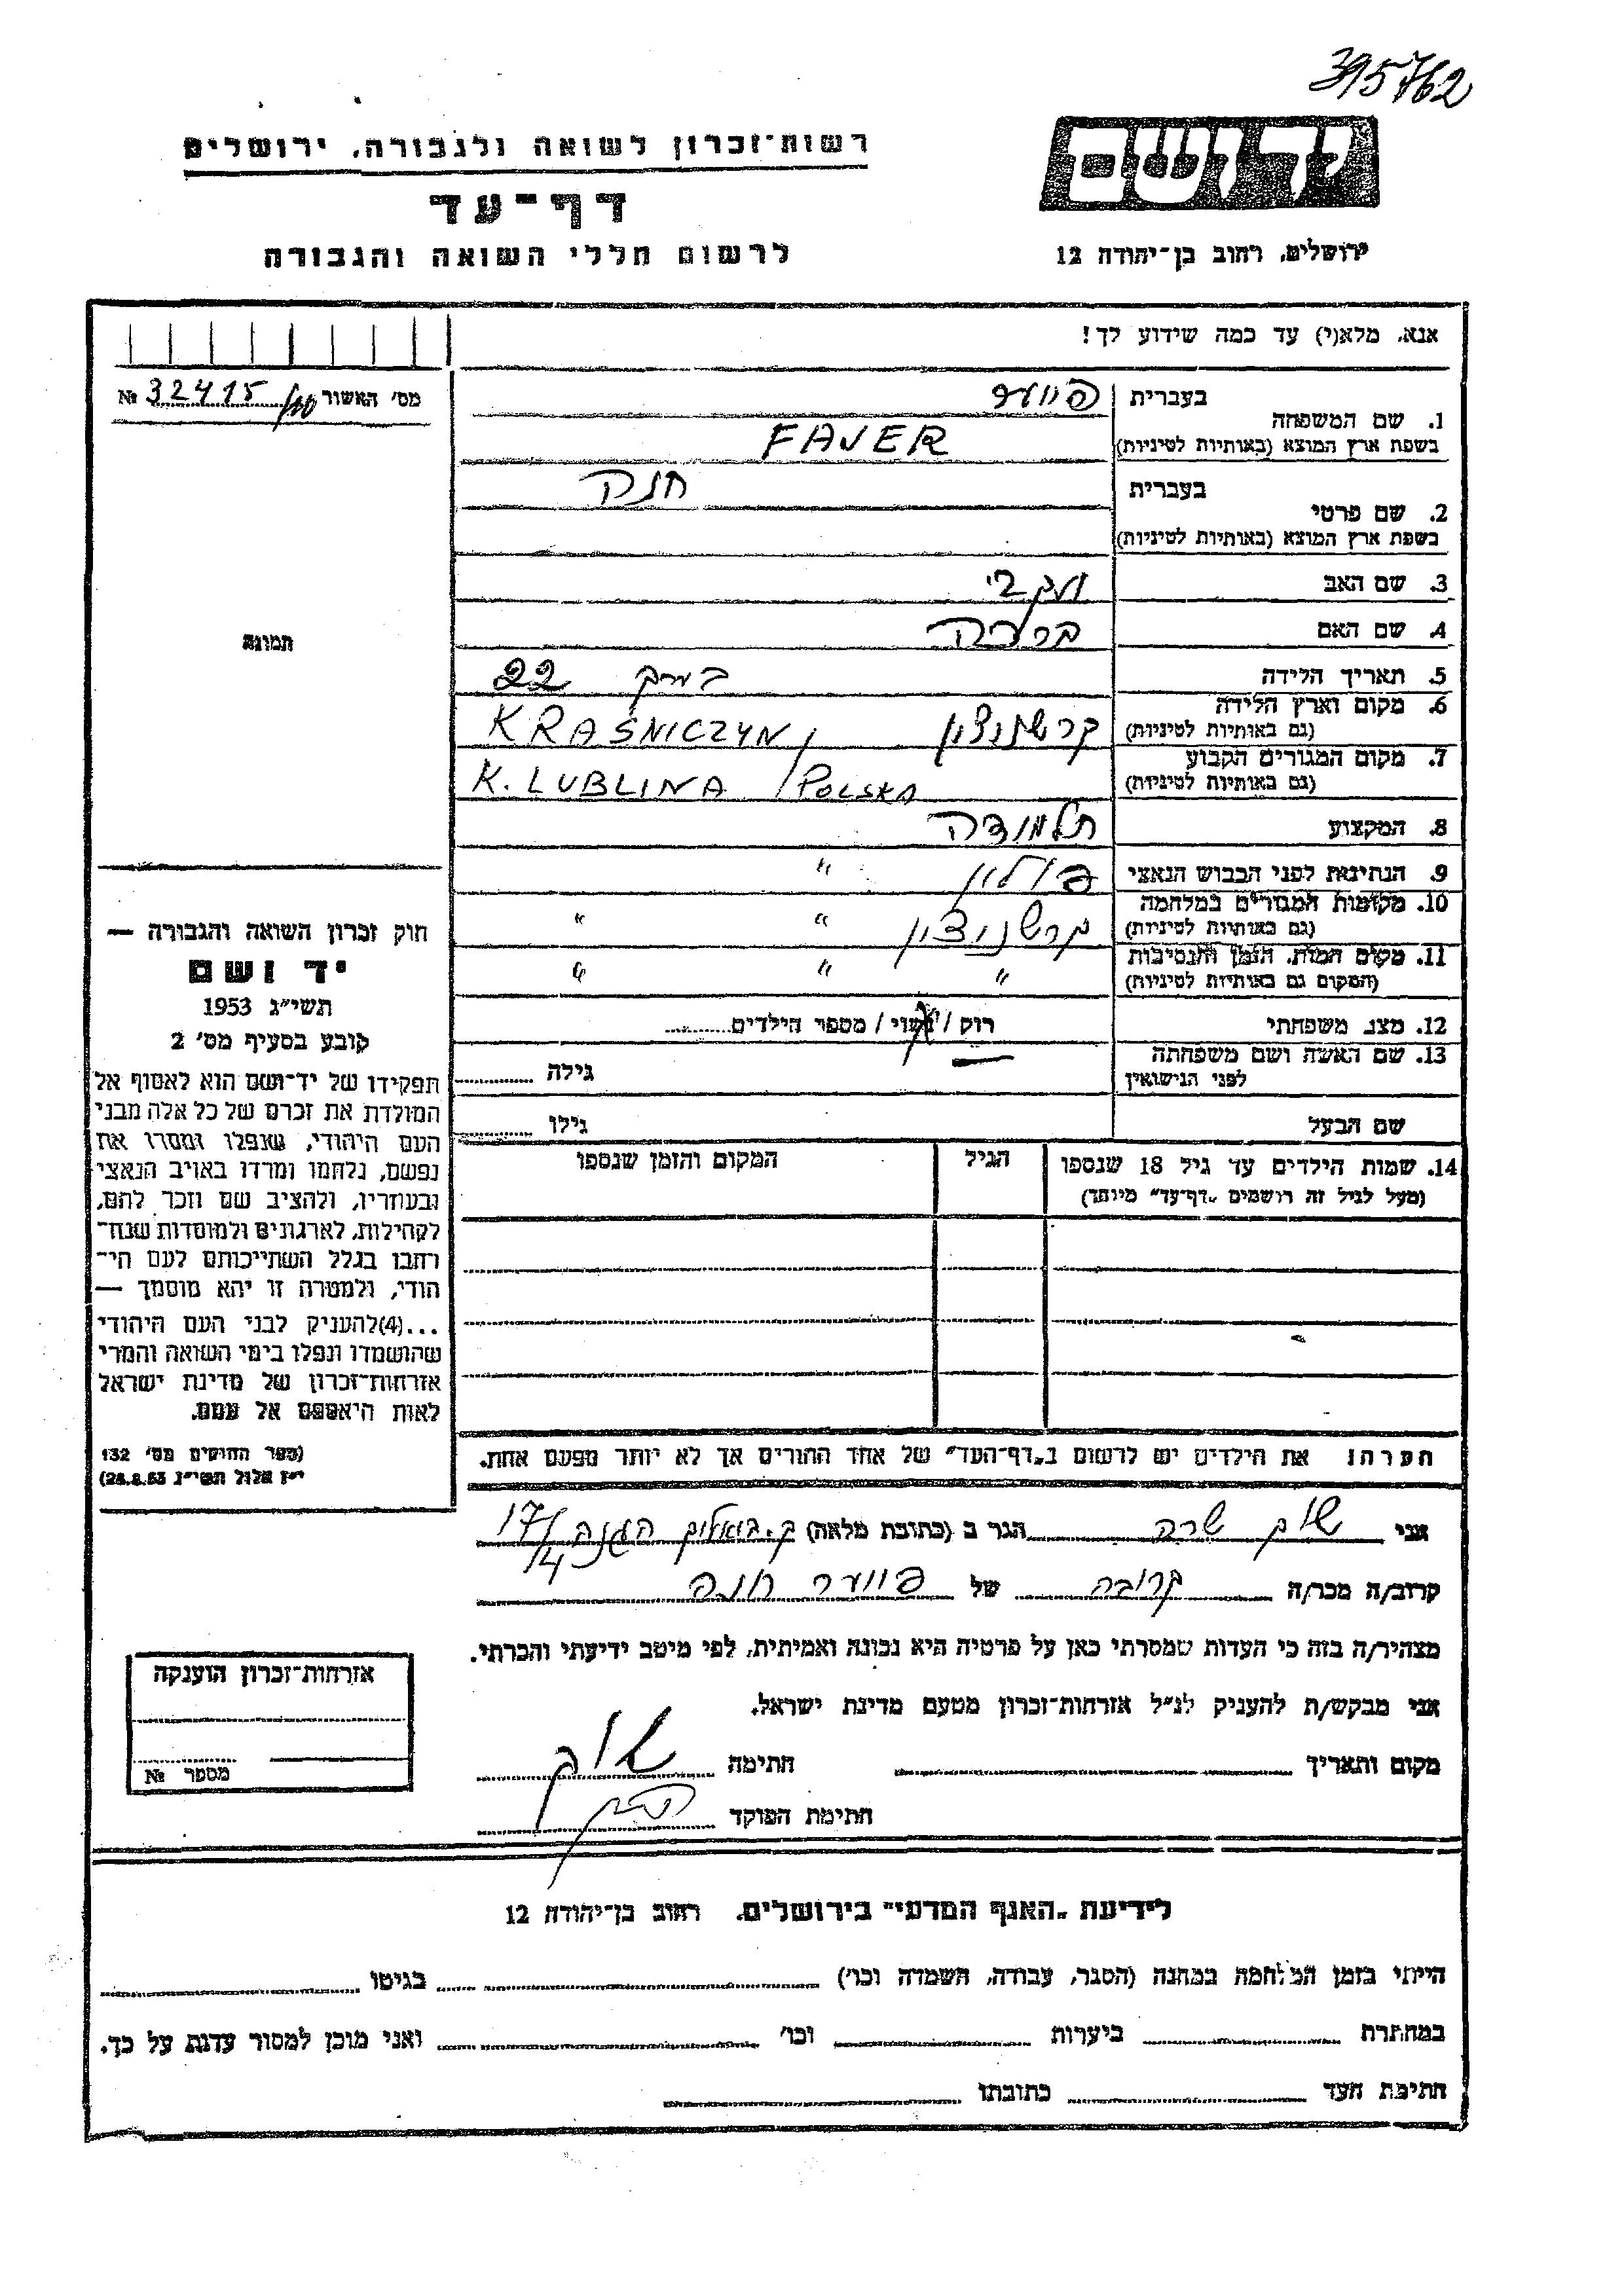 395762
רשות־זכרון לשואה ולגבורה, ירושלים
דף־עד
לרשום חללי השואה והגבורה
יד ושם
ירושלים, רחוב בן־יהודה 12
אנא, מלא(י) עד כמה שידוע לך!
מס' האשור № 32415
1. שם המשפחה בעברית
בשפת ארץ המוצא (באותיות לטיניות) FAJER
2. שם פרטי בעברית חנה
בשפת ארץ המוצא (באותיות לטיניות)
3. שם האב
4. שם האם
5. תאריך הלידה 22
6. מקום וארץ הלידה (גם באותיות לטיניות) קרשניצין KRAŚNICZYN,
7. מקום המגורים הקבוע (גם באותיות לטיניות) K. LUBLINA / POLSKA
8. המקצוע תלמידה
9. הנתינות לפני הכבוש הנאצי פולין "
10. מקומות המגורים במלחמה (גם באותיות לטיניות) קרשניצין " "
11. מקום המות, הזמן והנסיבות (המקום גם באותיות לטיניות) " " "
12. מצב משפחתי רוק / נשוי / מספר הילדים
13. שם האשה ושם משפחתה לפני הנישואין — גילה
שם הבעל גילו
14. שמות הילדים עד גיל 18 שנספו הגיל המקום והזמן שנספו
(מעל לגיל זה רושמים "דף־עד" מיוחד)
תמונה
חוק זכרון השואה והגבורה —
יד ושם
תשי"ג 1953
קובע בסעיף מס' 2
תפקידו של יד־ושם הוא לאסוף אל
המולדת את זכרם של כל אלה מבני
העם היהודי, שנפלו ומסרו את
נפשם, נלחמו ומרדו באויב הנאצי
ובעוזריו, ולהציב שם וזכר להם,
לקהילות, לארגונים ולמוסדות שנח־
רחבו בגלל השתייכותם לעם הי־
הודי, ולמטרה זו יהא מוסמך —
...(4)להעניק לבני העם היהודי
שהושמדו ונפלו בימי השואה והמרי
אזרחות־זכרון של מדינת ישראל
לאות היאספם אל עמם.
(ספר החוקים מס' 132
י"ז אלול תשי"ג 28.8.53)
הערה: את הילדים יש לרשום ב"דף־העד" של אחד ההורים אך לא יותר מפעם אחת.
אני שרה הגר ב (כתובת מלאה) 17/4
קרוב/ה מכר/ה קרובה של חנה
מצהיר/ה בזה כי העדות שמסרתי כאן על פרטיה היא נכונה ואמיתית, לפי מיטב ידיעתי והכרתי.
אני מבקש/ת להעניק לנ"ל אזרחות־זכרון מטעם מדינת ישראל.
מקום ותאריך חתימה
חתימת הפוקד
אזרחות־זכרון הוענקה
מספר №
לידיעת "האגף המדעי" בירושלים, רחוב בן־יהודה 12
הייתי בזמן המלחמה במחנה (הסגר, עבודה, השמדה וכו') בגיטו
במחתרת ביערות וכו' ואני מוכן למסור עדות על כך.
חתימת העד כתובתו